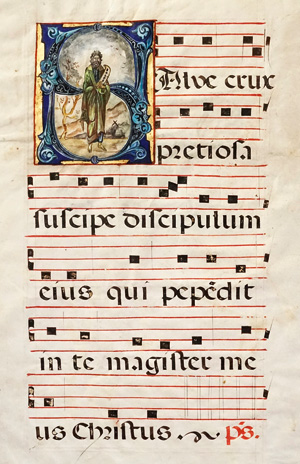 SAlve crux
pretiosa
suscipe discipulum
eius qui pepẽdit
in te magister me
us Christus. p̃s.